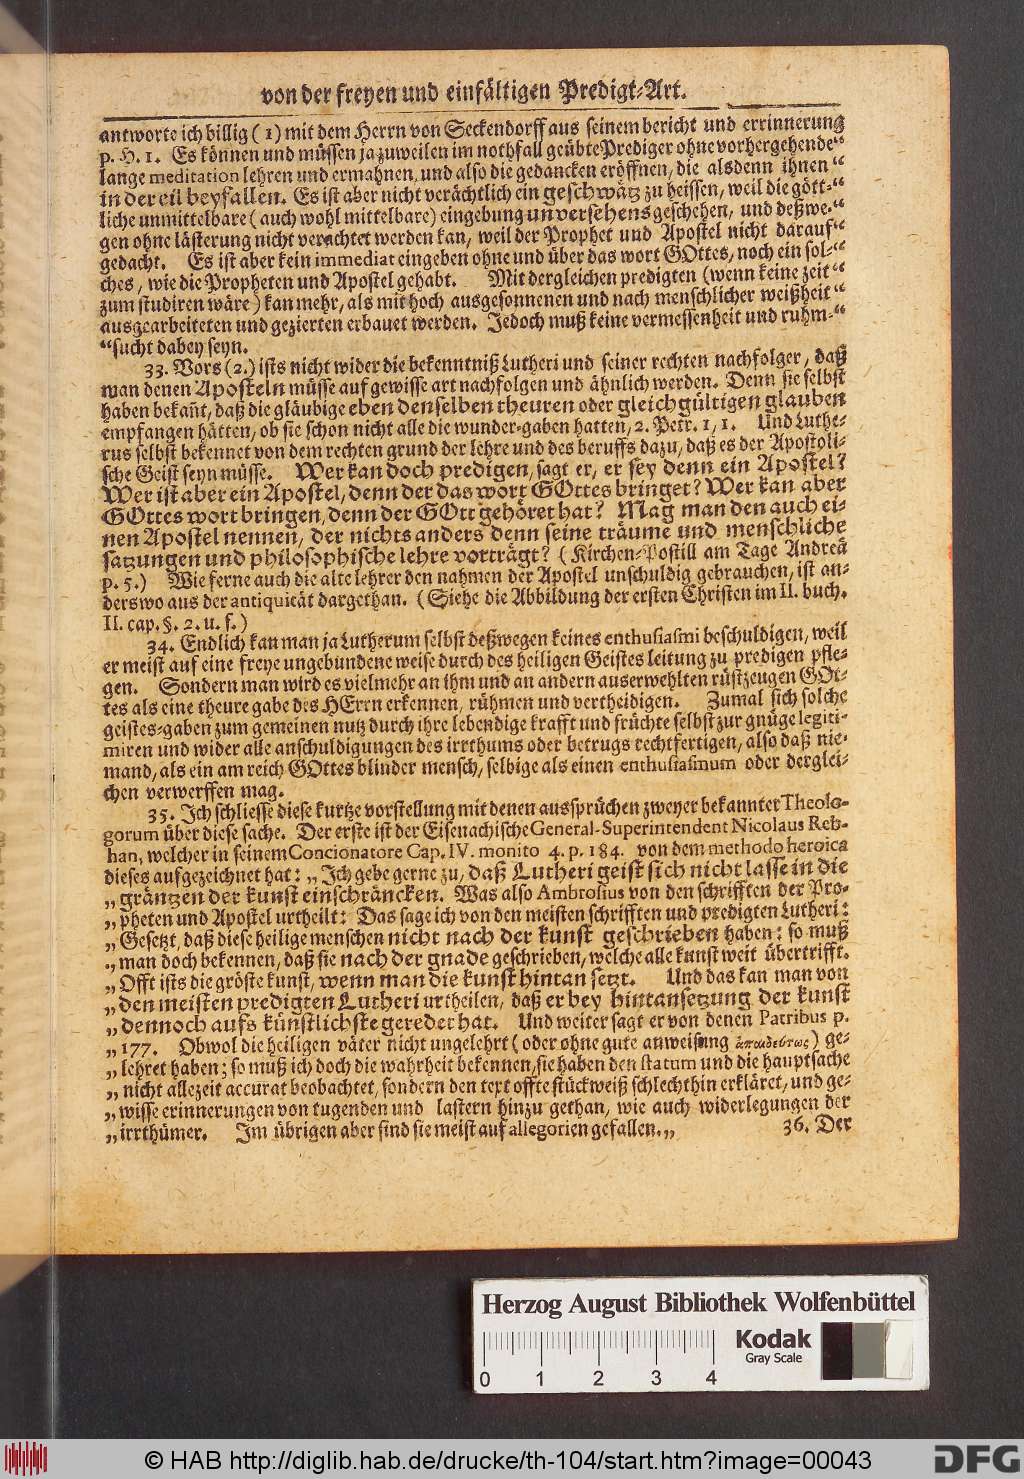 von der freyen und einfältigen Predigt-Art.
antworte ich billig (1) mit dem Herrn von Seckendorff aus seinem bericht und errinnerung
p. H. 1. Es können und müssen ja zuweilen im nothfall geübte Prediger ohne vorhergehende“
lange meditation lehren und ermahnen, und also die gedancken eröffnen, die alsdenn ihnen“
in der eil beyfallen. Es ist aber nicht verächtlich ein geschwätz zu heissen, weil die gött-“
liche unmittelbare (auch wohl mittelbare) eingebung unversehens geschehen, und deßwe-“
gen ohne lästerung nicht verachtet werden kan, weil der Prophet und Apostel nicht darauf“
gedacht. Es ist aber kein immediat eingeben ohne und über das wort GOttes, noch ein sol-“
ches, wie die Propheten und Apostel gehabt. Mit dergleichen predigten (wenn keine zeit“
zum studiren wäre) kan mehr, als mit hoch ausgesonnenen und nach menschlicher weißheit“
ausgearbeiteten und gezierten erbauet werden. Jedoch muß keine vermessenheit und ruhm-“
“sucht dabey seyn.
33. Vors (2.) ists nicht wider die bekenntniß Lutheri und seiner rechten nachfolger, daß
man denen Aposteln müsse auf gewisse art nachfolgen und ähnlich werden. Denn sie selbst
haben bekañt, daß die gläubige eben denselben theuren oder gleich gültigen glauben
empfangen hätten, ob sie schon nicht alle die wunder-gaben hatten, 2. Petr. 1, 1. Und Luthe-
rus selbst bekennet von dem rechten grund der lehre und des beruffs dazu, daß es der Apostoli-
sche Geist seyn müsse. Wer kan doch predigen, sagt er, er sey denn ein Apostel?
Wer ist aber ein Apostel, denn der das wort GOttes bringet? Wer kan aber
GOttes wort bringen, denn der GOtt gehöret hat? Mag man den auch ei-
nen Apostel nennen, der nichts anders denn seine träume und menschliche
satzungen und philosophische lehre vorträgt? (Kirchen-Postill am Tage Andreä
p. 5.) Wie ferne auch die alte lehrer den nahmen der Apostel unschuldig gebrauchen, ist an-
derswo aus der antiquität dargethan. (Siehe die Abbildung der ersten Christen im II. buch.
II. cap. §. 2. u. f.)
34. Endlich kan man ja Lutherum selbst deßwegen keines enthusiasmi beschuldigen, weil
er meist auf eine freye ungebundene weise durch des heiligen Geistes leitung zu predigen pfle-
gen. Sondern man wird es vielmehr an ihm und an andern auserwehlten rüstzeugen GOt-
tes als eine theure gabe des HErrn erkennen, rühmen und vertheidigen. Zumal sich solche
geistes-gaben zum gemeinen nutz durch ihre lebendige krafft und früchte selbst zur gnüge legiti-
miren und wider alle anschuldigungen des irrthums oder betrugs rechtfertigen, also daß nie-
mand, als ein am reich GOttes blinder mensch, selbige als einen enthusiasmum oder derglei-
chen verwerffen mag.
35. Ich schliesse diese kurtze vorstellung mit denen aussprüchen zweyer bekannter Theolo-
gorum über diese sache. Der erste ist der Eisenachische General-Superintendent Nicolaus Reb-
han, welcher in seinem Concionatore Cap. IV. monito 4. p. 184. von dem methodo heroica
dieses aufgezeichnet hat: „Ich gebe gerne zu, daß Lutheri geist sich nicht lasse in die
„gräntzen der kunst einschräncken. Was also Ambrosius von den schrifften der Pro-
„pheten und Apostel urtheilt: Das sage ich von den meisten schrifften und predigten Lutheri:
„Gesetzt, daß diese heilige menschen nicht nach der kunst geschrieben haben: so muß
„man doch bekennen, daß sie nach der gnade geschrieben, welche alle kunst weit übertrifft.
„Offt ists die gröste kunst, wenn man die kunst hintan setzt. Und das kan man von
„den meisten predigten Lutheri urtheilen, daß er bey hintansetzung der kunst
„dennoch aufs künstlichste geredet hat. Und weiter sagt er von denen Patribus p.
„177. Obwol die heiligen väter nicht ungelehrt (oder ohne gute anweisung ἀπαιδεύτως) ge-
„lehret haben; so muß ich doch die wahrheit bekennen, sie haben den statum und die hauptsache
„nicht allezeit accurat beobachtet, sondern den text offte stückweiß schlechthin erkläret, und ge-
„wisse erinnerungen von tugenden und lastern hinzu gethan, wie auch widerlegungen der
„irrthümer. Im übrigen aber sind sie meist auf allegorien gefallen.„ 36. Der
Herzog August Bibliothek Wolfenbüttel
Kodak
Gray Scale
0 1 2 3 4
© HAB http://diglib.hab.de/drucke/th-104/start.htm?image=00043
DFG